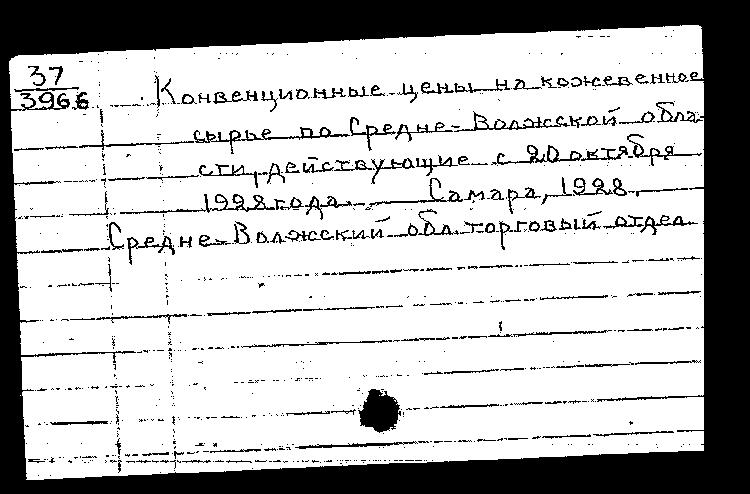 37
39666
Конвенционные цены на кожевенное
сырье по Средне-Волжской обла-
сти, действующие с 20 октября
1928 года. Самара, 1928.
Средне-Волжский обл. торговый отдел.